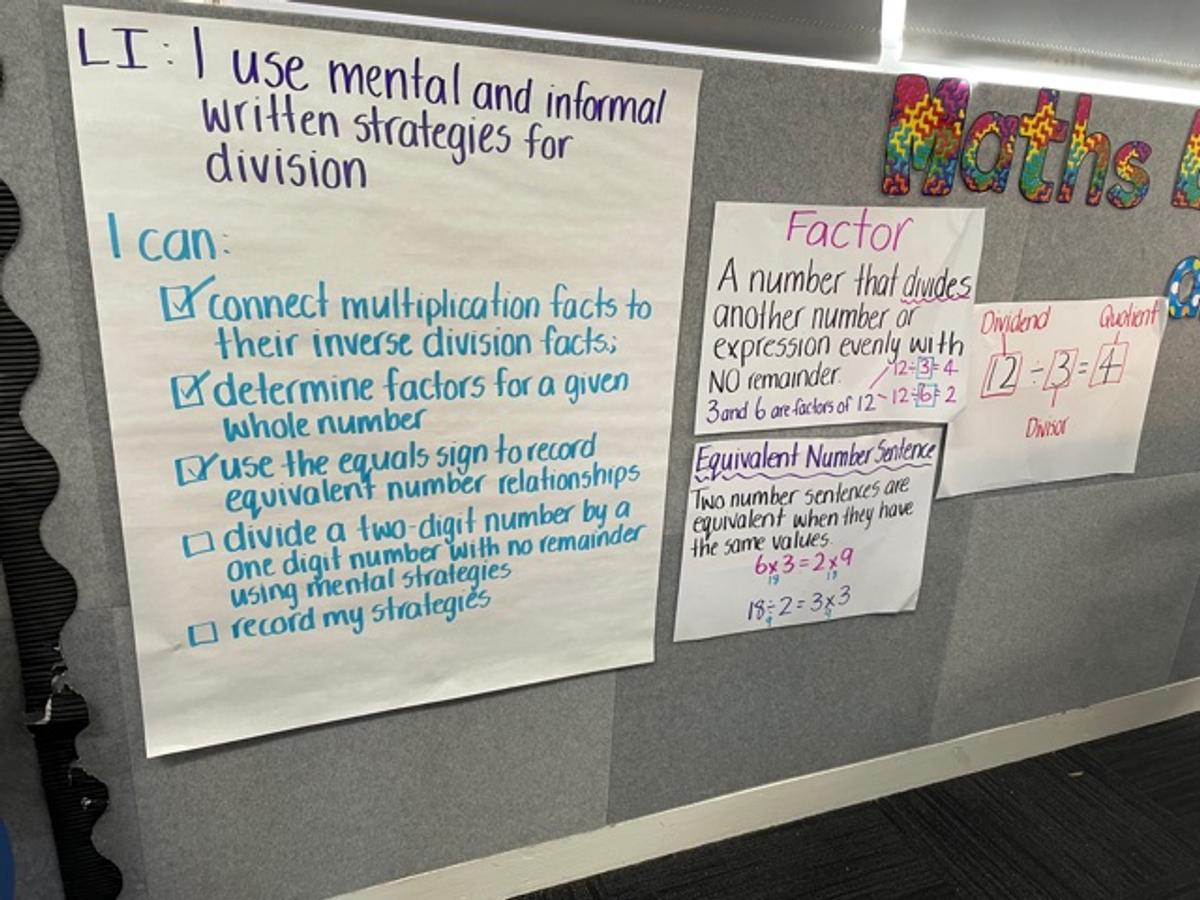 LI: I use mental and informal
written strategies for
division
I can:
connect multiplication facts to
their inverse division facts;
determine factors for a given
whole number
use the equals sign to record
equivalent number relationships
divide a two-digit number by a
one digit number with no remainder
using mental strategies
record my strategies
Maths
Factor
A number that divides
another number or
expression evenly with
NO remainder.
12÷3=4
3 and 6 are factors of 12
12÷6=2
Equivalent Number Sentence
Two number sentences are
equivalent when they have
the same values.
6x3=2x9
18 18
18÷2=3x3
9 9
Dividend Quotient
12 ÷ 3 = 4
Divisor